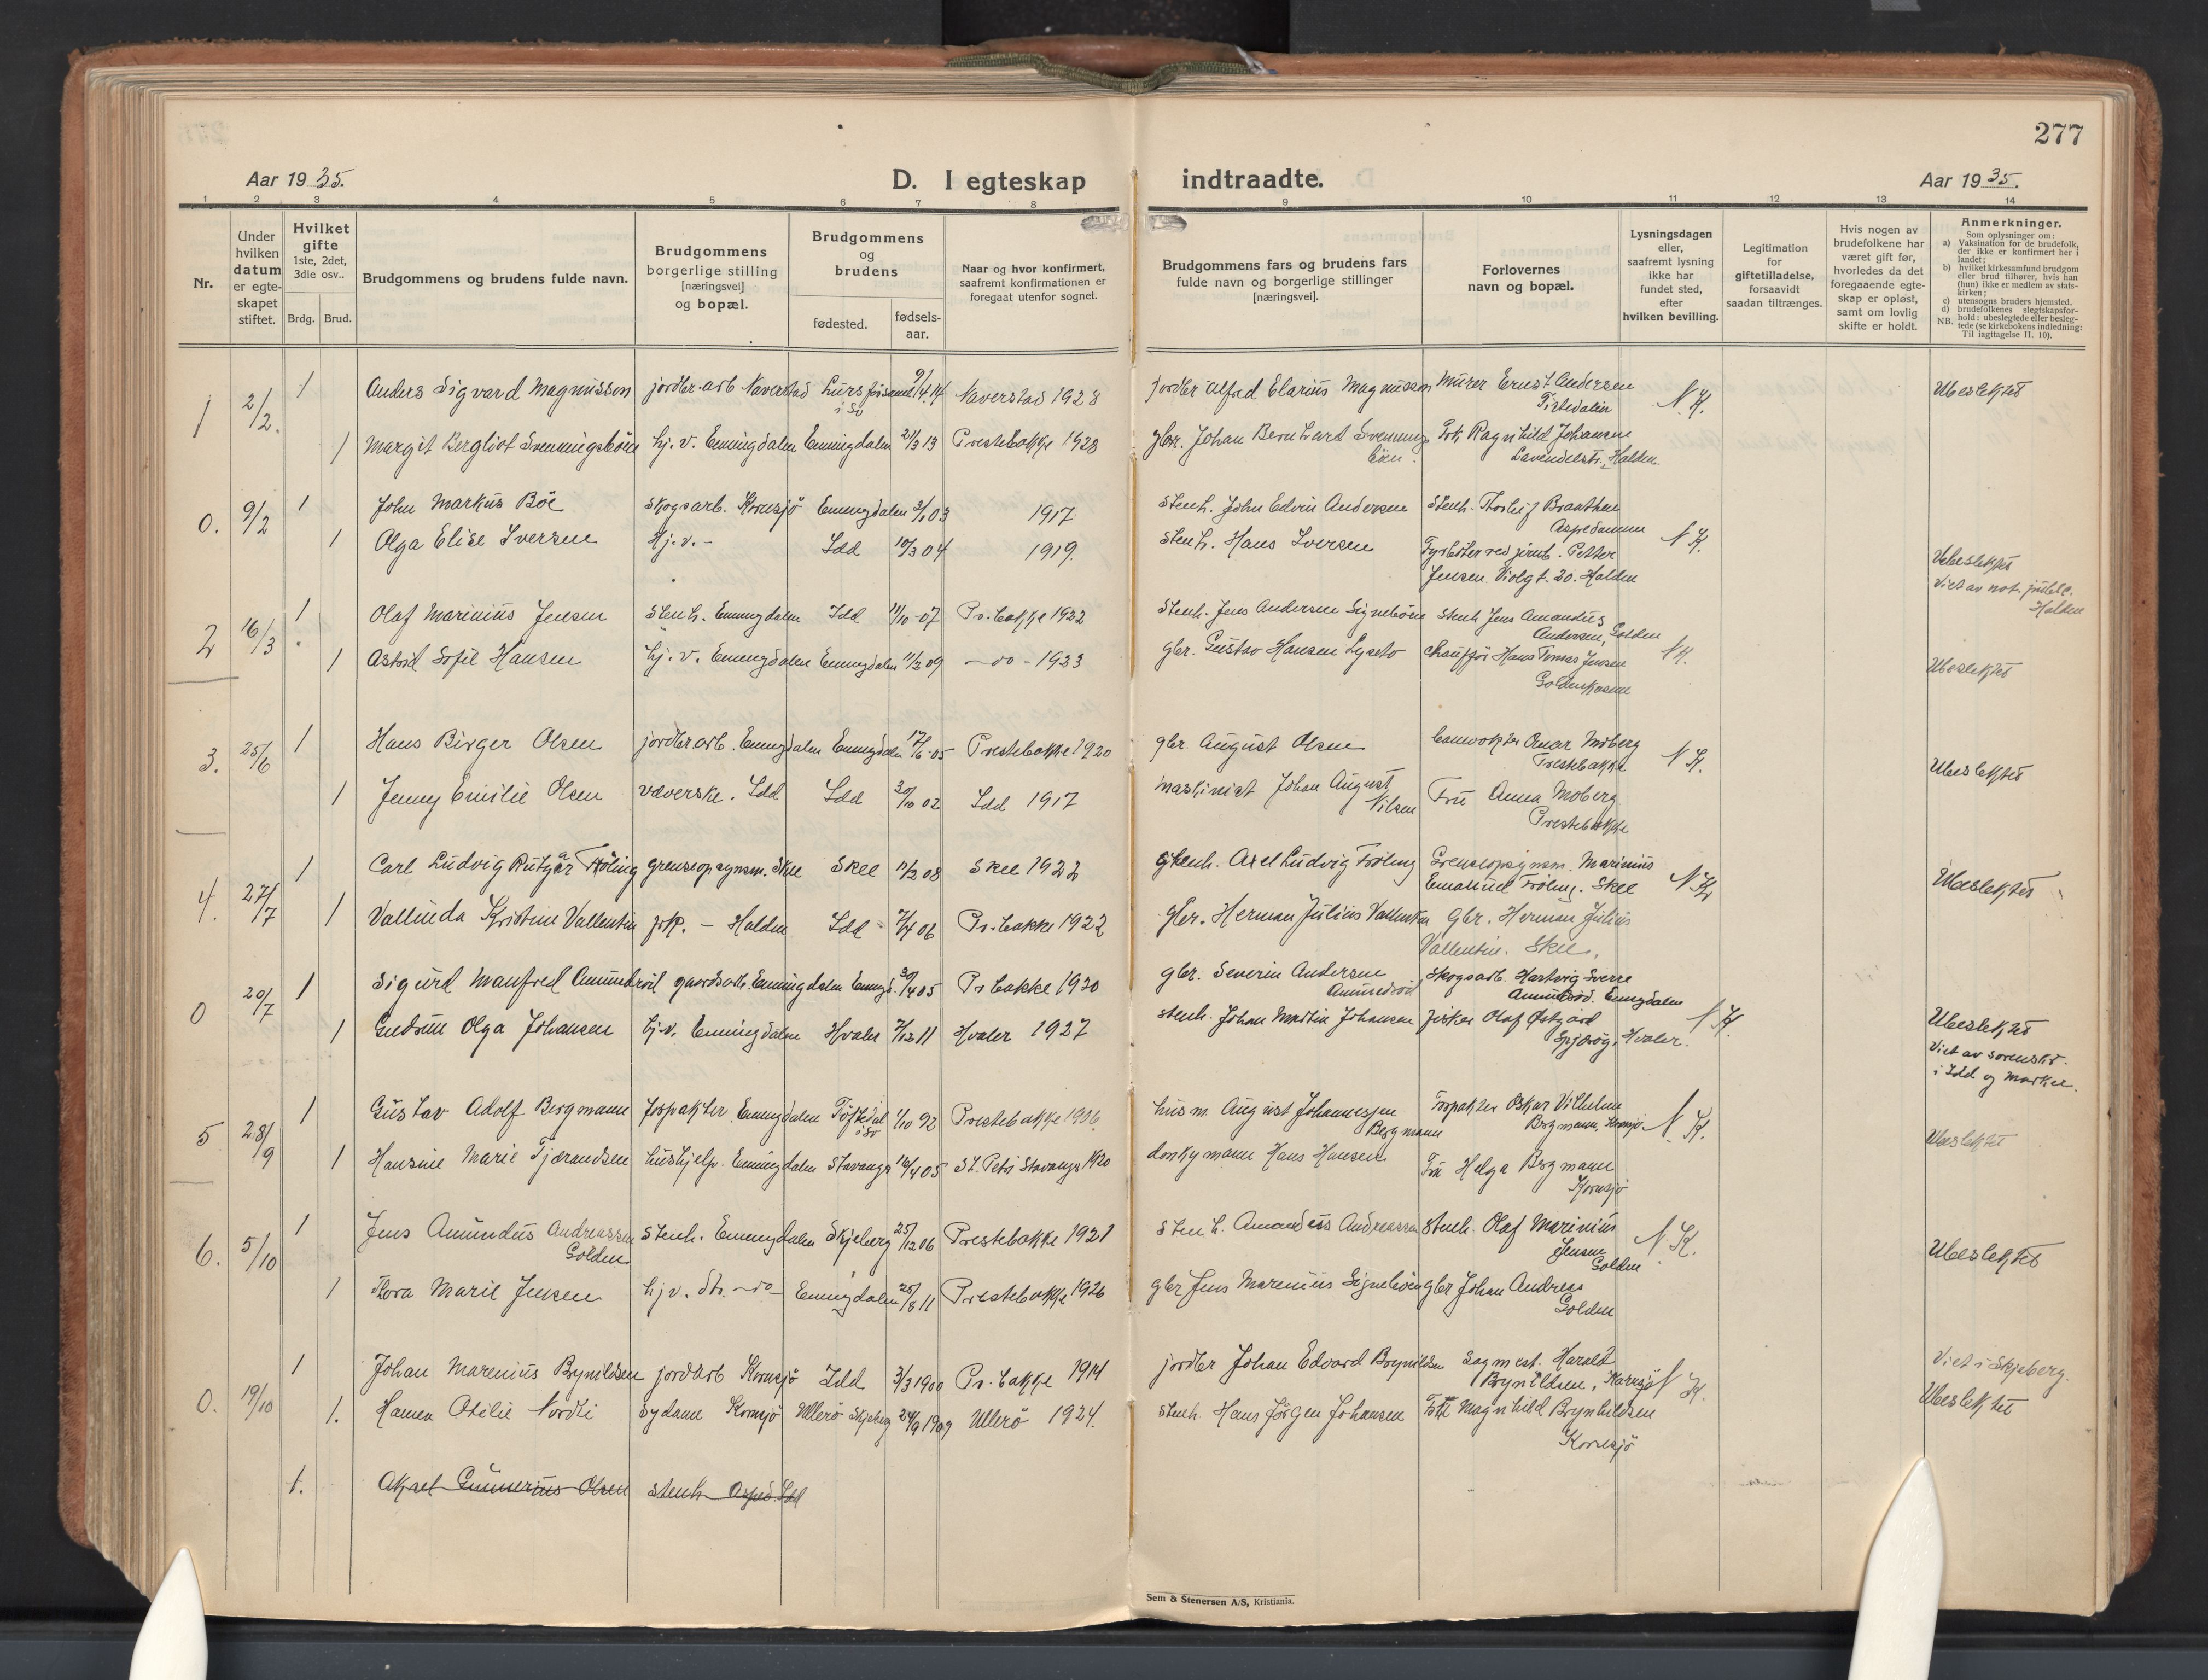 277
Aar 1935.
D. I egteskap indtraadte.
Aar 1935.
1 2 3 4 5 6 7 8 9 10 11 12 13 14
Nr.
Under hvilken datum er egteskapet stiftet.
Hvilket gifte 1ste, 2det, 3die osv..
Brdg. Brud.
Brudgommens og brudens fulde navn.
Brudgommens borgerlige stilling [næringsvei] og bopæl.
Brudgommens og brudens
fødested.
fødsels-aar.
Naar og hvor konfirmert, saafremt konfirmationen er foregaat utenfor sognet.
Brudgommens fars og brudens fars fulde navn og borgerlige stillinger [næringsvei].
Forlovernes navn og bopæl.
Lysningsdagen eller, saafremt lysning ikke har fundet sted, efter hvilken bevilling.
Legitimation for giftetilladelse, forsaavidt saadan tiltrænges.
Hvis nogen av brudefolkene har været gift før, hvorledes da det foregaaende egteskap er opløst, samt om lovlig skifte er holdt.
Anmerkninger.
Som oplysninger om:
a) Vaksination for de brudefolk, der ikke er konfirmert her i landet;
b) hvilket kirkesamfund brudgom eller brud tilhører, hvis han (hun) ikke er medlem av statskirken;
c) utensogns bruders hjemsted.
d) brudefolkenes slegtskapsforhold: ubeslegtede eller beslegtede (se kirkebokens indledning: Til iagttagelse II. 10).
NB.
1 2/2. 1 Anders Sigvard Magnusson jordbr.arb Naverstad Lurs i Sv 9/4.14 Naverstad 1928 jordbr Alfred Elarius Magnusson Murer Ernst Andersen Tistedalen N.K. Ubeslektet
1 Margit Bergliot Svenningsbøen hj. v. Enningdalen Enningdalen 21/3 13 Prestebakke 1928 gbr. Johan Bernhard Svennings bøen. Frk Ragnhild Johansen Lavendelstr. Halden.
0. 9/2 1 John Markus Böe Skogsarb. Kornsjö Enningdalen 3/1 03 1917 Stenh. John Edvin Andersen Stenh. Thorleif Braathen Aspedammen N.K.
1 Olga Elise Iversen Hj. v. - Idd 10/3 04 1919. Stenh. Hans Iversen Fyrbøter ved jernb. Petter Jensen. Violgt. 30. Halden Ubeslektet
Viet av not. publ. Halden
2 16/3 1 Olaf Marinius Jensen Stenh. Enningdalen Idd 11/10-07 Pr.bakke 1922 Stenh. Jens Andersen Signebøen Stenh Jens Amandus Andersen, Golden
1 Astrid Sofie Hansen hj. v. Enningdalen Enningdalen 11/2 09 -do- 1923 gbr. Gustav Hansen chauffør Hans Tomas Jensen Goldenkasene N.K. Ubeslektet
3. 25/6 1 Hans Birger Olsen jordbr.arb. Enningdalen Enningdalen 17/6-05 Prestebakke 1920 gbr. August Olsen banevokter Omar Moberg Prestebakke N.K.
1 Jenny Emilie Olsen væverske. Idd Idd 30/10 02 Idd 1917 maskinist Johan August Nilsen Fru Anna Moberg Prestebakke Ubeslektet
4. 27/7 1 Carl Ludvig Rutgar Fröling grenseopsynsm. Skee Skee 11/2 08 Skee 1922 stenh. Axel Ludvig Fröling Grenseopsynsm. Marinius Emanuel Fröling. Skee N.K. Ubeslektet
1 Vallinda Kristine Vallentin frk. - Halden Idd 7/4 06 Pr.bakke 1922 gbr. Herman Julius Vallentin Gbr. Herman Julius Vallentin. Skee.
0 20/7 1 Sigurd Manfred Amundröd gaardsarb. Enningdalen Enningd. 30/4 05 Pr bakke 1920 gbr. Severin Andersen Amundröd Skogsarb. Hartvig Sverre Amundröd. Enningdalen
1 Gudrun Olga Johansen hj-v. Enningdalen Hvaler 7/12 11 Hvaler 1927 stenh. Johan Martin Johansen fisker Olaf Østgård Spjærøy, Hvaler. N.K. Ubeslektet
Viet av sorenskr. i Idd og Marker.
5 28/9 1 Gustav Adolf Bergmann forpakter Enningdalen Töftedal i Sv 1/10 92 Prestebakke 1906. husm. August Johannessen Bergmann Forpakter Oskar Vilhelm Bergmann, Kornsjö N.K.
1 Hansine Marie Tjærandsen hushjelp. Enningdalen Stavanger 12/4 05 St. Petri Stavanger 1920 donkymann Hans Hansen Fru Helga Bergmann Kornsjö Ubeslektet
6. 5/10 1 Jens Amundus Andreassen Golden Stenh. Enningdalen Skjeberg 25/12 06 Prestebakke 1921 Stenh. Amandus Andreassen Stenh. Olaf Marinius Jensen Golden N.K. Ubeslektet
1 Thora Marie Jensen hj v. -do- Enningdalen 25/8 11 Prestebakke 1926 gbr Jens Marenius Signebøen gbr Johan Andreas Golden
0. 19/10 1 Johan Marenius Brynildsen jordarb Kornsjö Idd 3/3 1900 Pr. bakke 1914 jordbr Johan Edvard Brynildsen Sagmest. Harald Brynildsen, Kornsjö N.K. Viet i Skjeberg.
1. Hanna Otilie Nordli Sydame Kornsjö Ullerö Skjeberg 24/9 1909 Ullerö 1924. Stenh. Hans Jörgen Johansen Magnhild Brynhildsen Kornsjö Ubeslektet
1. Aksel Gunnerius Olsen stenh Asped. Idd
Sem & Stenersen A/S, Kristiania.